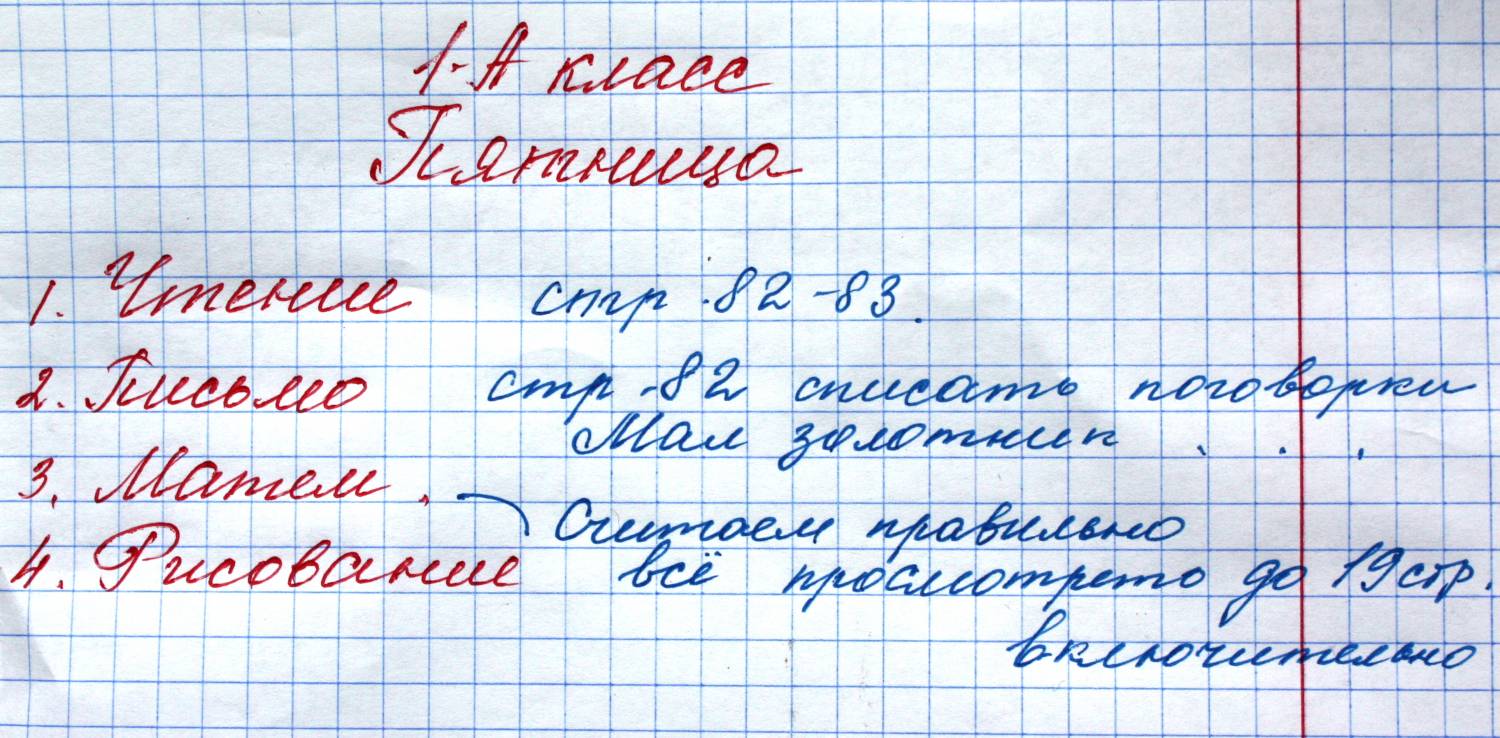 1-А класс
Пятница
1. Чтение стр. 82-83.
2. Письмо стр. 82 списать поговорки
Мал золотник . . .
3. Матем.
Считаем правильно
4. Рисование всё просмотреть до 19 стр.
включительно